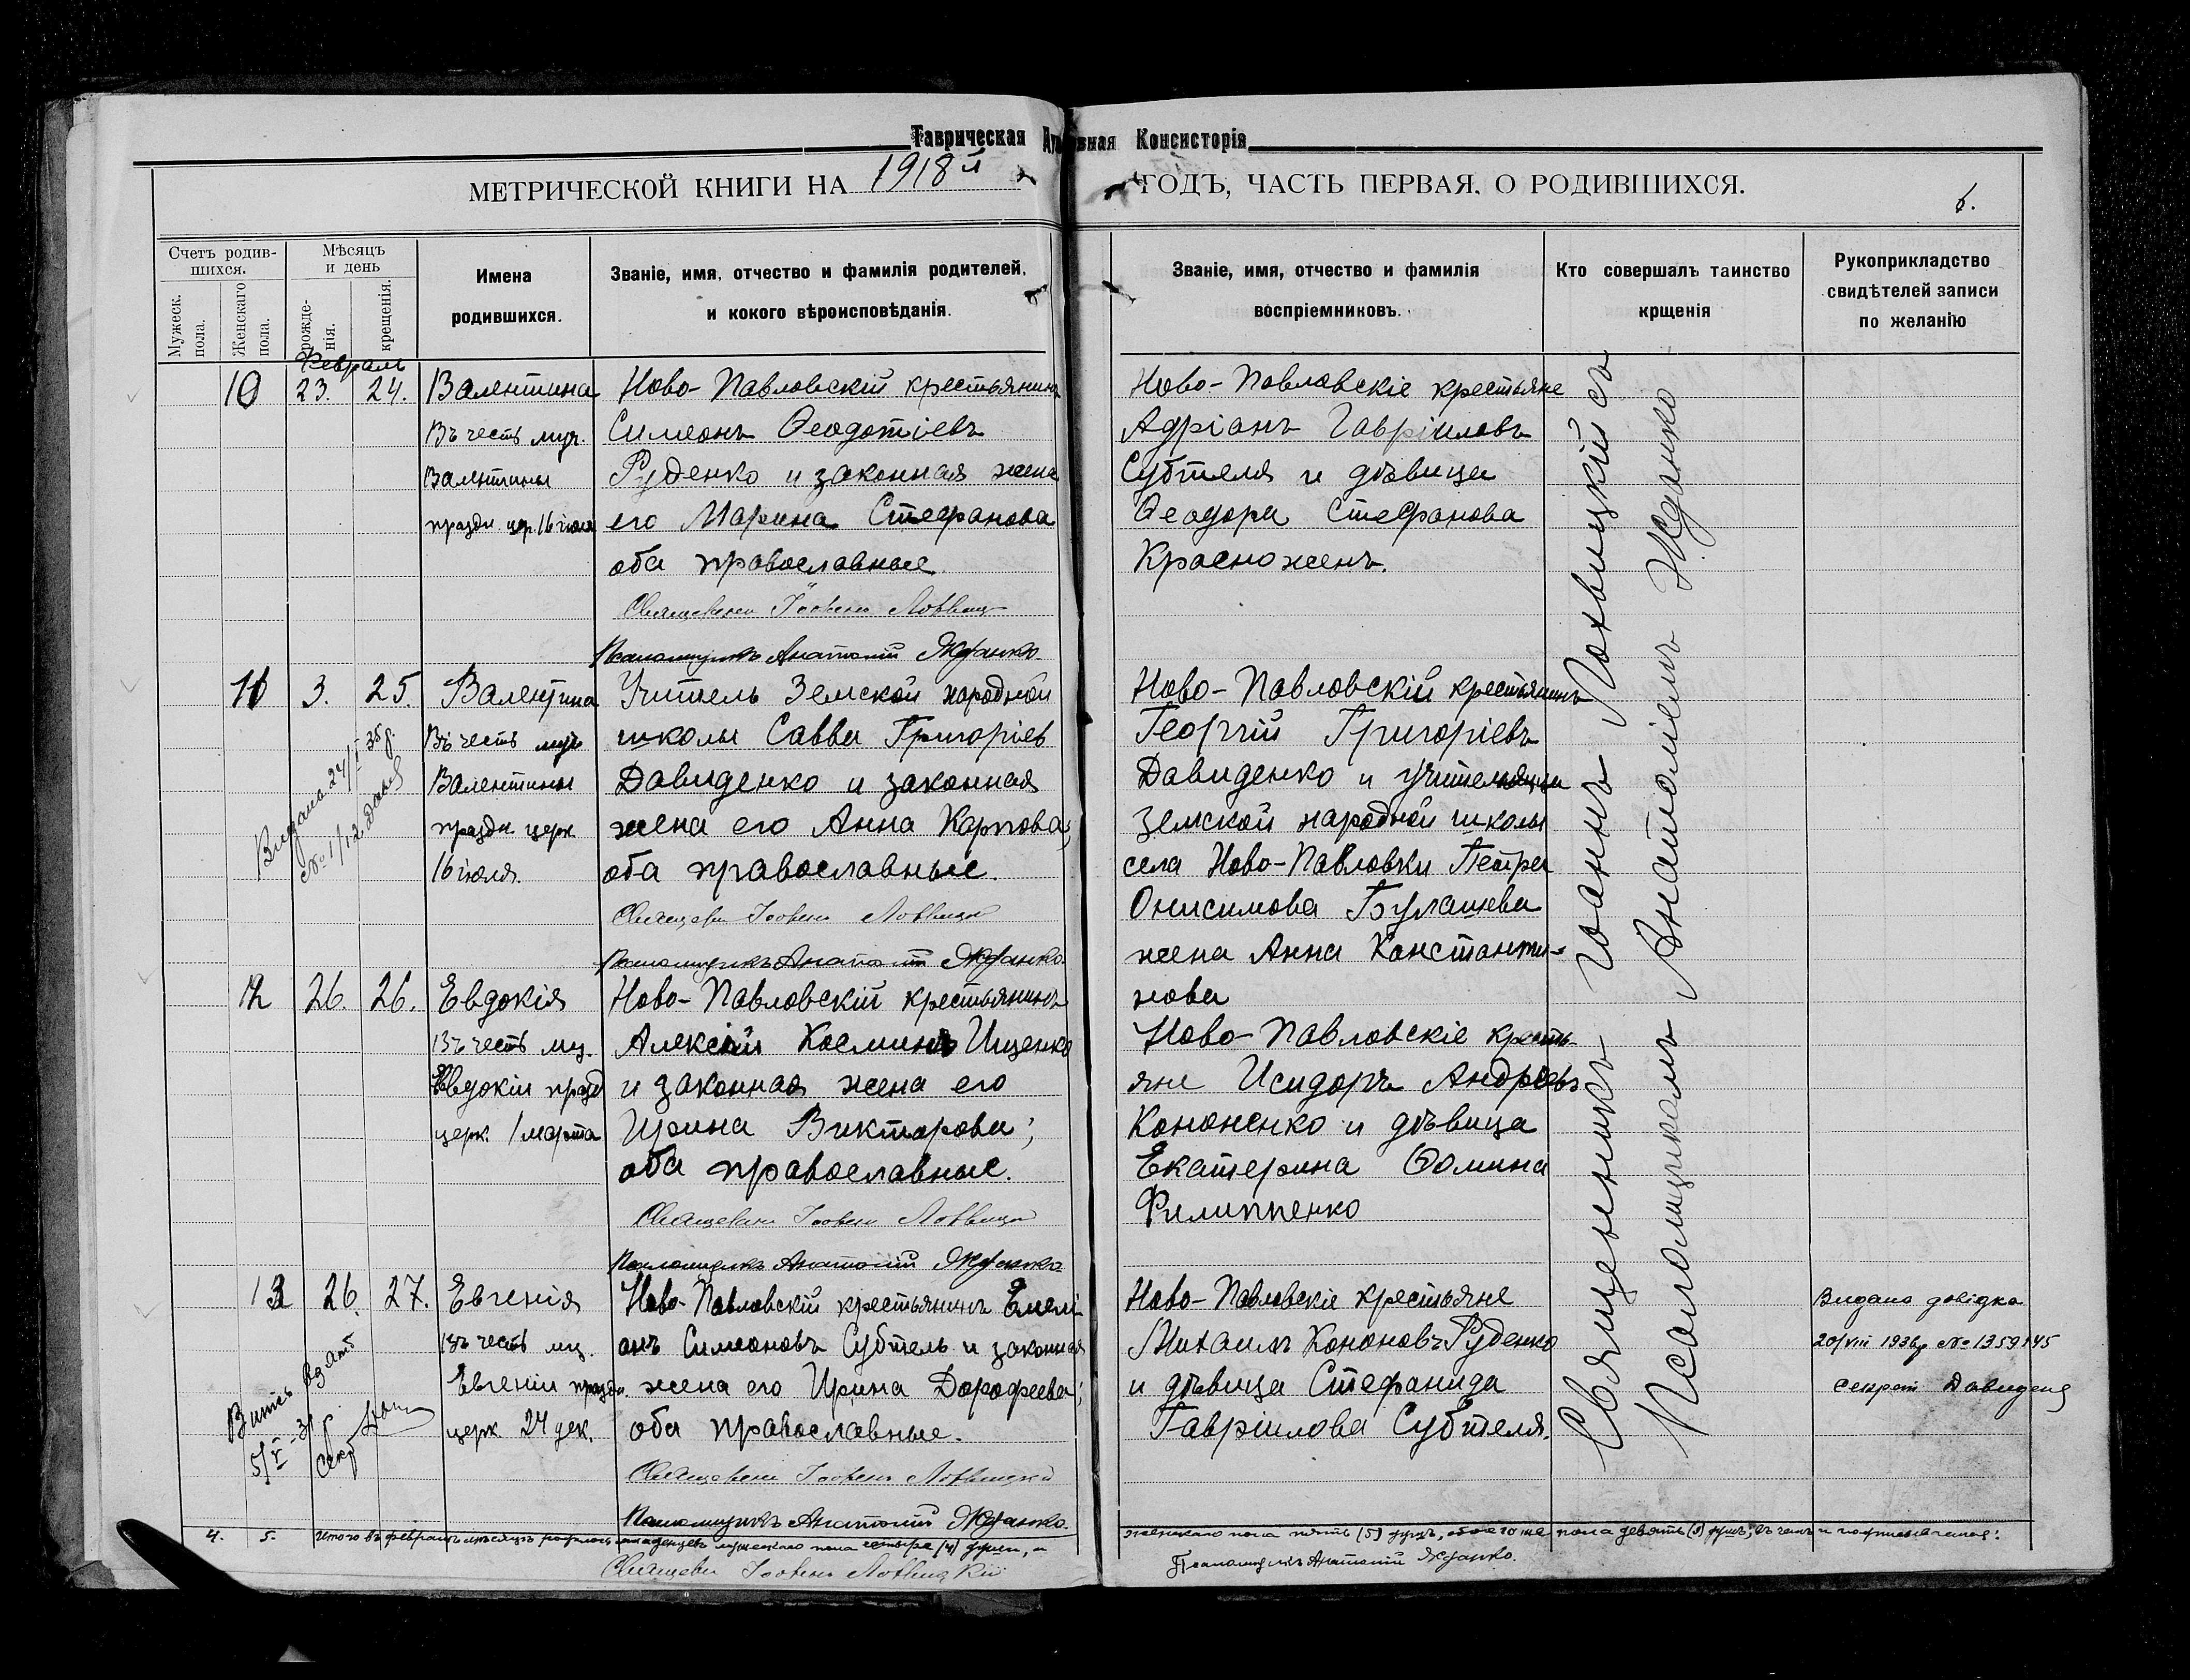 Таврическая Духовная Консисторія
МЕТРИЧЕСКОЙ КНИГИ НА 1918й ГОДЪ, ЧАСТЬ ПЕРВАЯ, О РОДИВШИХСЯ.
6.
Счетъ родив-
шихся.
Мужеск.
пола.
Женскаго
пола.
Мѣсяцъ
и день
рожде-
нія.
крещенія.
Имена
родившихся.
Званіе, имя, отчество и фамилія родителей,
и кокого вѣроисповѣданія.
Званіе, имя, отчество и фамилія
воспріемниковъ.
Кто совершалъ таинство
крщенія
Рукоприкладство
свидѣтелей записи
по желанію
Февраль
10 23. 24.
Валентина
Въ честь муч.
Валентины
праздн. цер. 16 іюля
Ново-Павловскій крестьянинъ
Симеонъ Ѳеодотіевъ
Руденко и законная жена
его Марина Стефанова
оба православные.
Псаломщикъ Анатолій Жданко.
Ново-Павловскіе крестьяне
Адріанъ Гавріиловъ
Субтеля и дѣвица
Ѳеодора Стефанова
Красножонъ.
11 3. 25.
Валентина
Въ честь муч
Валентины
праздн. церк.
16 іюля.
Видана 24/I 35 р.
№ 1/12
Учитель Земской народной
школы Савва Григоріев
Давиденко и законная
жена его Анна Карпова;
оба православные.
Псаломщикъ Анатолій Жданко.
Ново-Павловскій крестьянинъ
Георгій Григоріевъ
Давиденко и учительница
земской народной школы
села Ново-Павловки Петра
Онисимова Булашева
жена Анна Константи-
нова
12 26. 26.
Евдокія
Въ честь муч.
Евдокіи празд
церк. 1 марта
Ново-Павловскій крестьянинъ
Алексій Косминъ Ищенко
и законная жена его
Ирина Викторова;
оба православные.
Псаломщикъ Анатолій Жданко
Ново-Павловскіе кресть-
яне Исидоръ Андреевъ
Кононенко и дѣвица
Екатерина Ѳомина
Филиппенко
13 26. 27.
Евгенія
Въ честь муч.
Евгеніи праздн.
церк 24 дек.
Витяг взято
5/V-31 р.
Секр
Ново-Павловскій крестьянинъ Емелі
анъ Симеоновъ Субтель и законная
жена его Ирина Дорофеева;
оба православные.
Псаломщикъ Анатолій Жданко.
Ново-Павловскіе крестьяне
Михаилъ Кононовъ Руденко
и дѣвица Стефанида
Гавріилова Субтеля.
Священникъ Іоаннъ Лохвицкій съ
Псаломщикомъ Анатоліемъ Жданко
Видано довідка
20/VIII 1936 р № 1359145
Секрет
4. 5. Итого въ февралѣ мѣсяцѣ родилось младенцевъ мужескаго пола четыре (4) души, и
женскаго пола пять (5) душъ, обоего же пола девять (9) душъ; въ чемъ и подписываемся:
Псаломщикъ Анатолій Жданко.